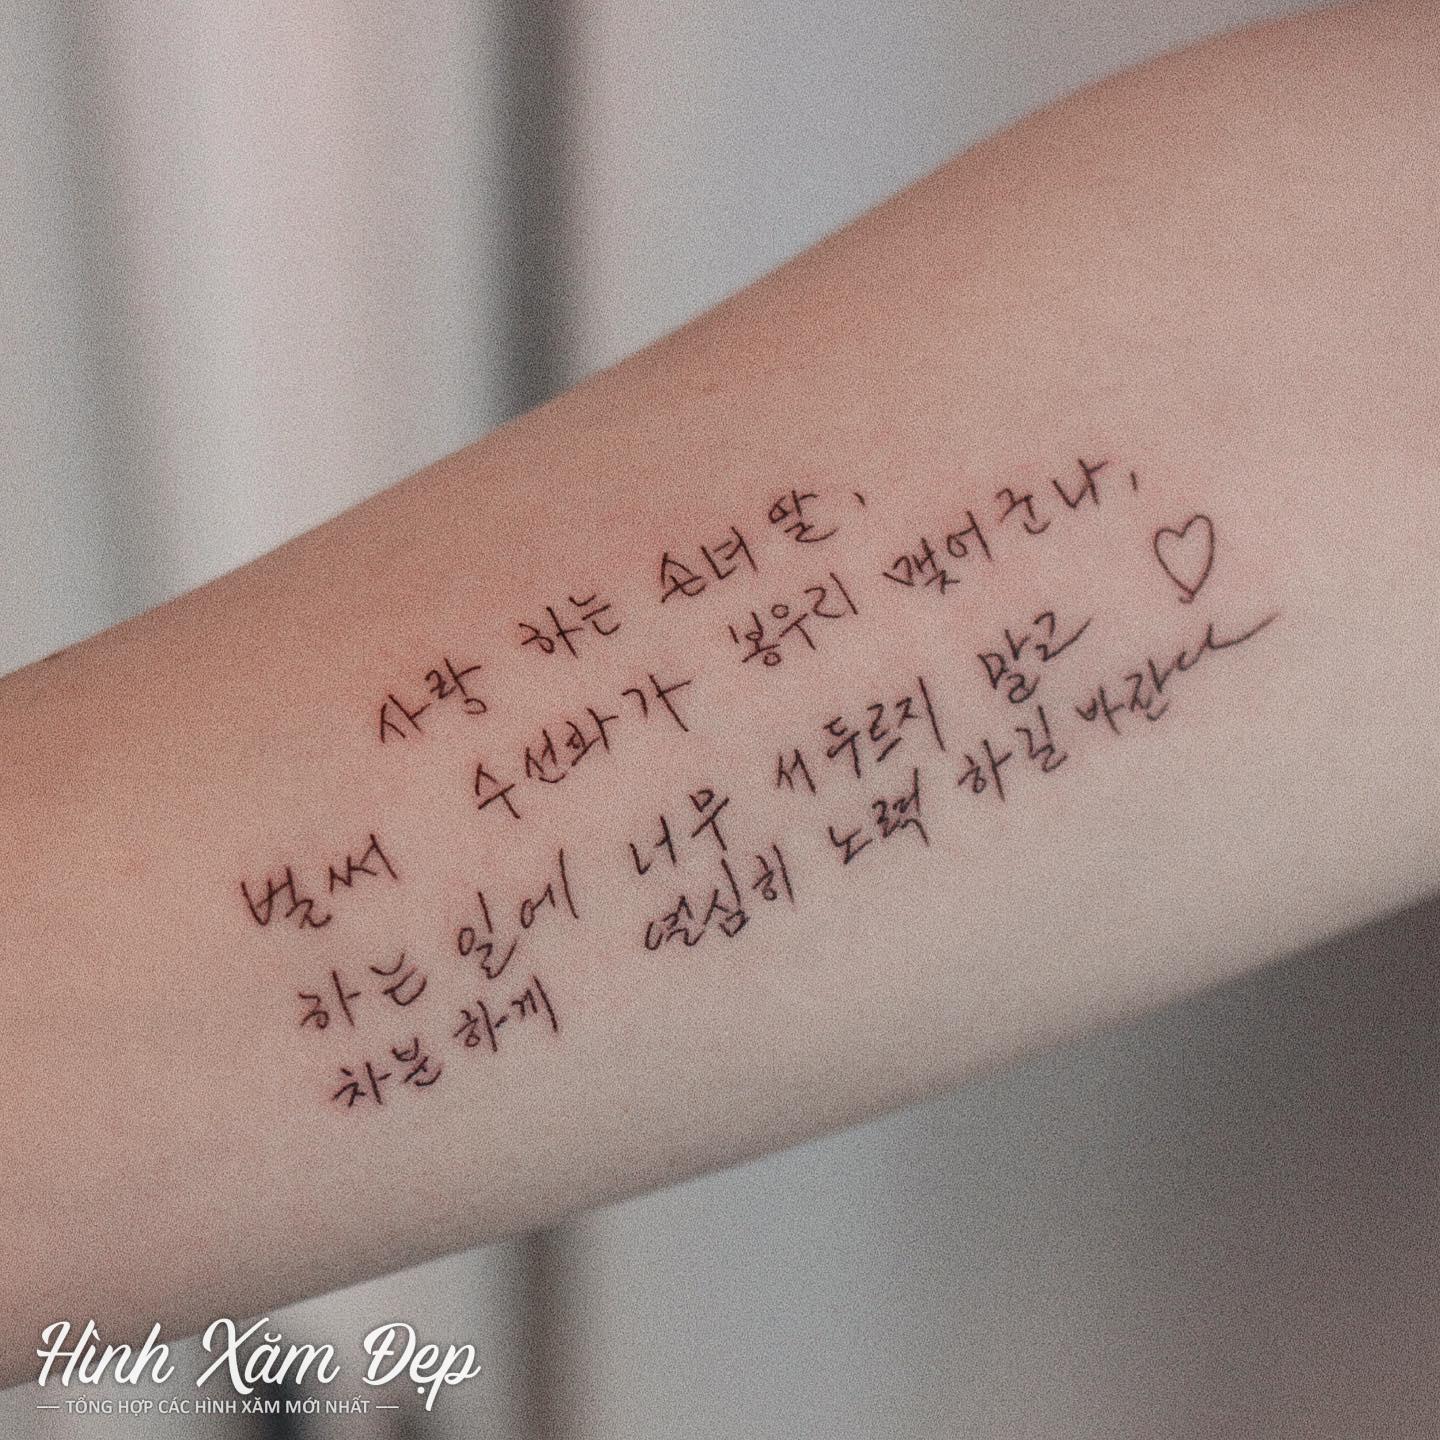 사랑 하는 손녀 딸,
벌써 수선화가 봉우리 맺어 군나,
하는 일에 너무 서두르지 말고 ♡
차분하게 열심히 노력 하길 바란다
Hình Xăm Đẹp
TỔNG HỢP CÁC HÌNH XĂM MỚI NHẤT